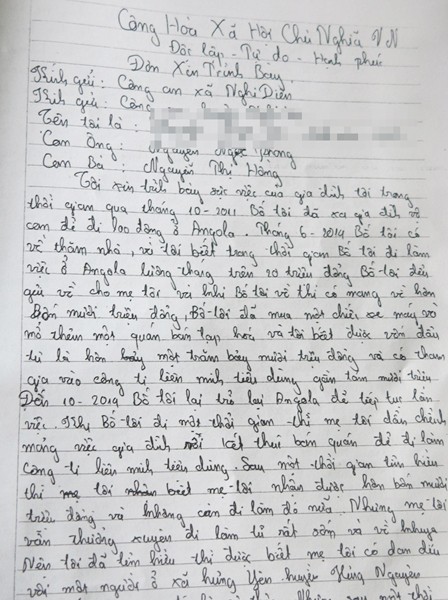 Công Hòa Xã Hội Chủ Nghĩa VN
Độc lập - Tự do - Hạnh phúc
Đơn Xin Trình Bày
Kính gửi: Công an xã Nghi Diên
Kính gửi: Công
Tên tôi là :
Con Ông : Nguyễn Ngọc
Con Bà : Nguyễn Thị Hồng
Tôi xin trình bày sức việc của gia đình tôi trong
thời gian qua tháng 10-2011 Bố tôi đã xa gia đình vợ
con để đi lao động ở Angola. Tháng 6-2014 Bố tôi có
về thăm nhà, và tôi biết trong thời gian Bố tôi đi làm
việc ở Angola lương tháng trên 20 triệu đồng Bố tôi đều
gửi về cho mẹ tôi và khi Bố tôi về thì có mang về hơn
Bốn mươi triệu đồng, Bố tôi đã mua một chiếc xe máy và
mở thêm một quán bán tạp hoá và tôi biết được vốn đầu
tư là hơn một trăm bảy mươi triệu đồng và có tham
gia vào công ti liên minh tiêu dùng gần tám mươi triệu
Đến 10-2014 Bố tôi lại trở lại Angola để tiếp tục làn
việc. Khi Bố tôi đi một thời gian thì mẹ tôi dần chểnh
mảng việc gia đình rồi kết thúc bán quán để đi làm
công ti liên minh tiêu dùng. Sau một thời gian tìm hiểu
thì tôi biết mẹ tôi nhận được hơn bốn mươi
triệu đồng và không còn đi làm đó nữa. Nhưng mẹ tôi
vẫn thường xuyên đi làm từ rất sớm và về khuya
Nên tôi đã tìm hiểu thì được biết mẹ tôi có dan díu
với một người ở xã hưng Yên huyện Hưng Nguyên